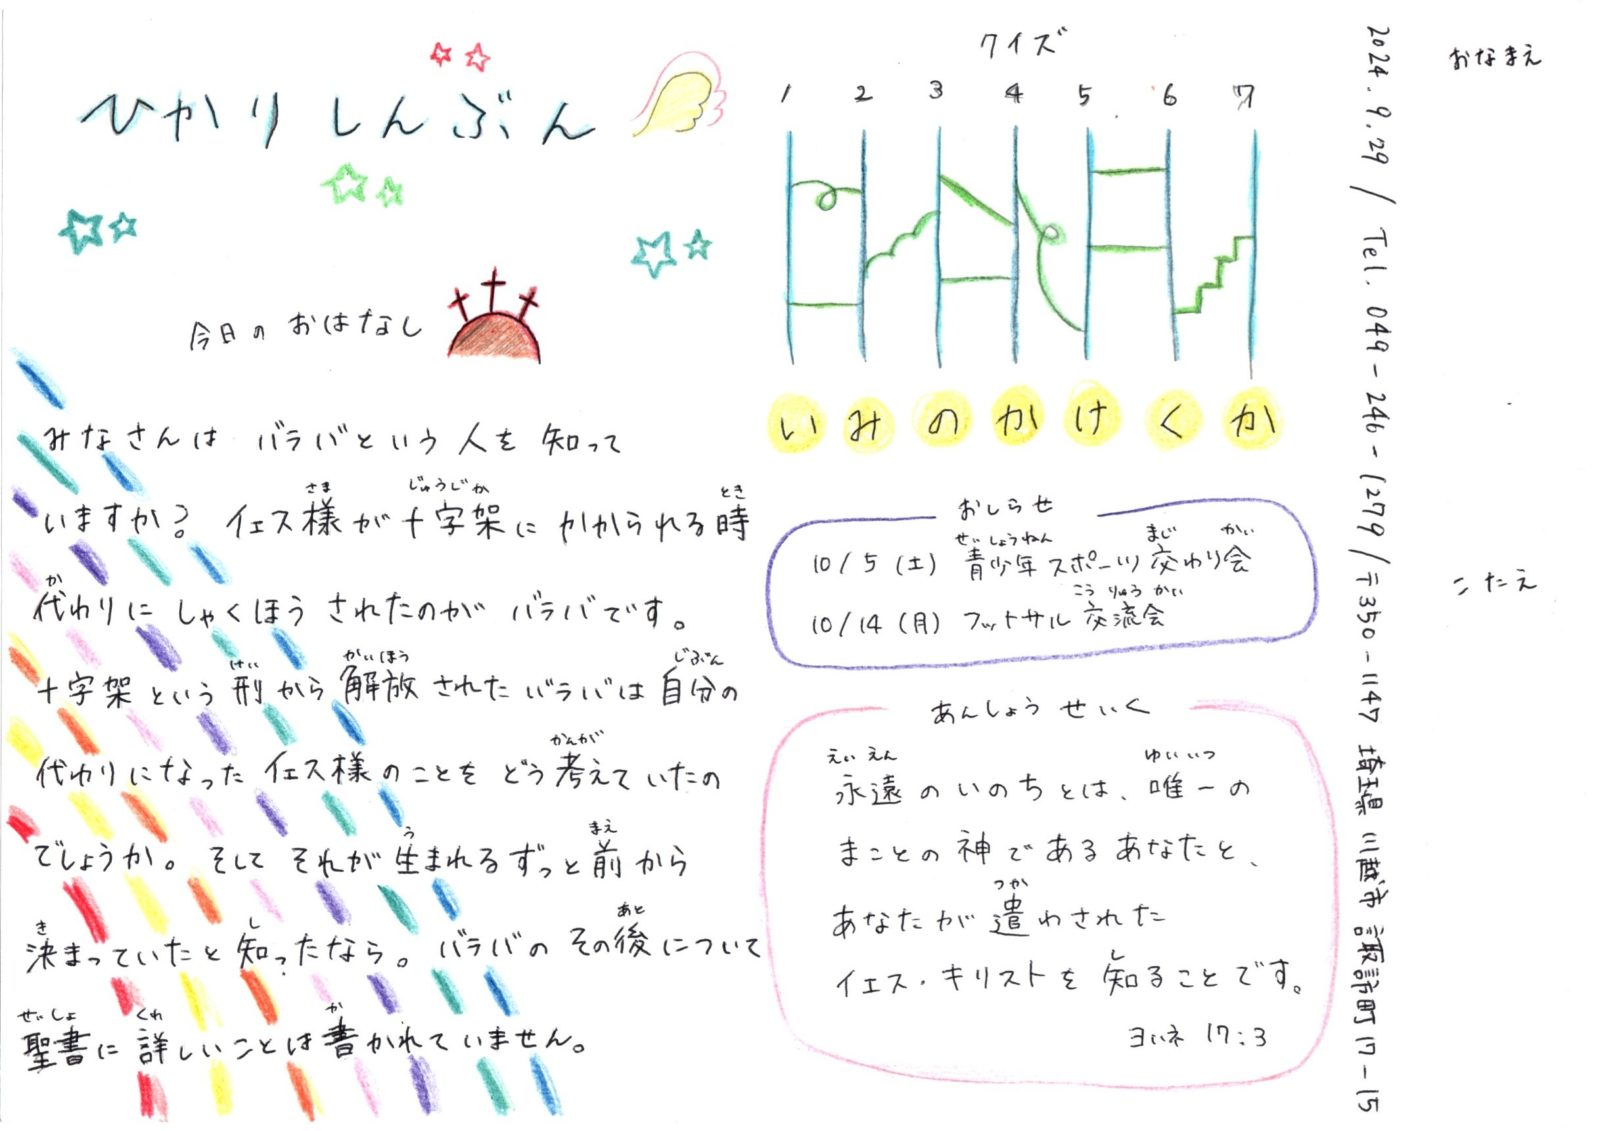 ひかりしんぶん
今日の おはなし
みなさんは バラバという 人を 知って
いますか? イエス様が十字架に かかられる時
さま じゅうじか とき
代わりに しゃくほう されたのが バラバです。
か
十字架 という 刑から 解放 されたバラバは 自分の
けい かいほう じぶん
代わりになった イエス様の ことを どう考えていたの
かんが
でしょうか。 そして それが 生まれるずっと前から
う まえ
決まっていたと 知ったなら。 バラバの その後について
き し あと
聖書に 詳しいことは書かれていません。
せいしょ くわ か
クイズ
1 2 3 4 5 6 7
い み の か け く か
おしらせ
10/5(土) 青少年スポーツ交わり会
せいしょうねん まじ かい
10/14(月) フットサル 交流会
こうりゅうかい
あんしょう せいく
永遠のいのちとは、唯一の
えいえん ゆいいつ
まことの神であるあなたと、
あなたが遣わされた
つか
イエス・キリストを 知ることです。
し
ヨハネ 17:3
2024.9.29 / Tel. 049-246-1279 / 〒350-1147 埼玉県 川越市 諏訪町 17-15
おなまえ
こたえ